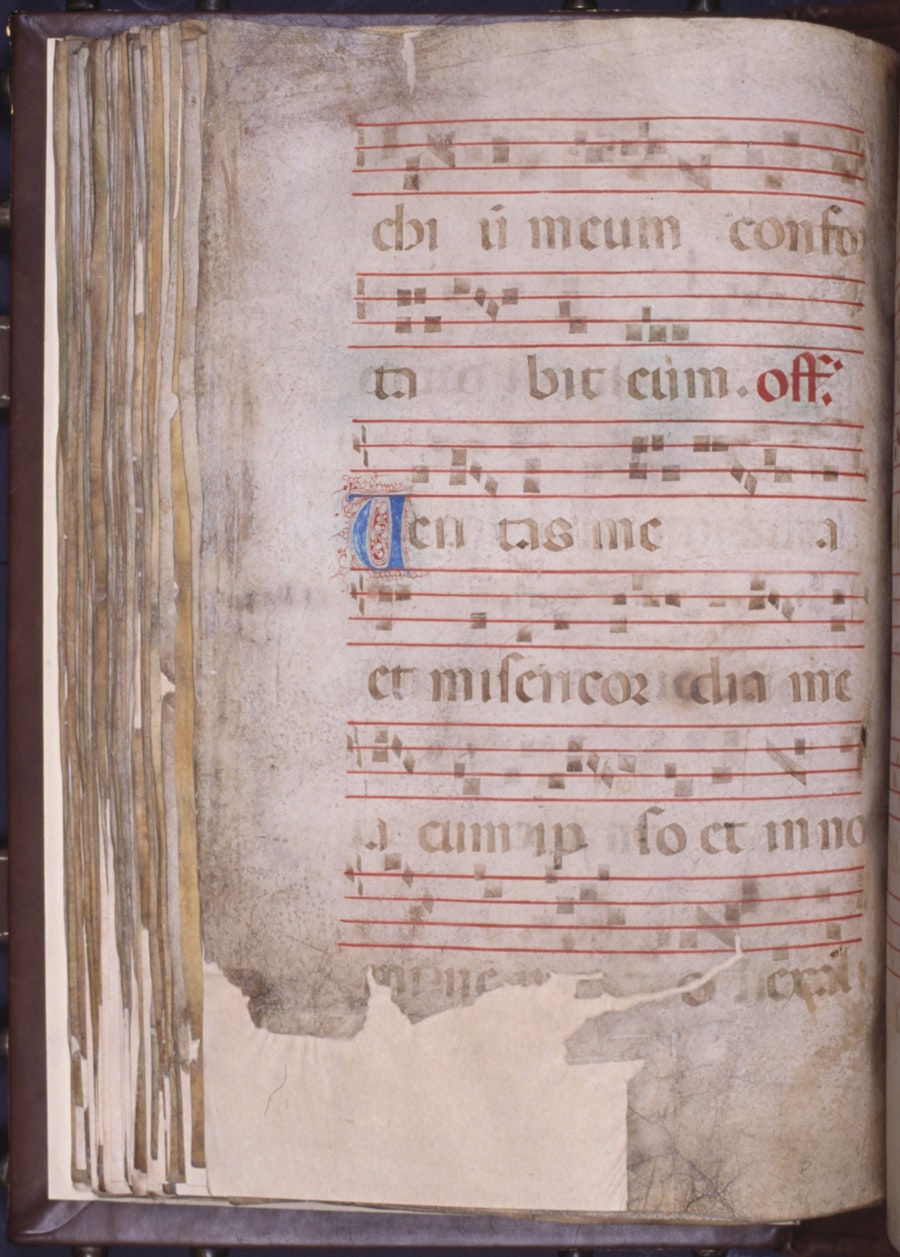 chi ū meum confor
ta bit eum. off:
Ueri tas me a
et misericor dia me
a cum ip so et in no
mine me o exal